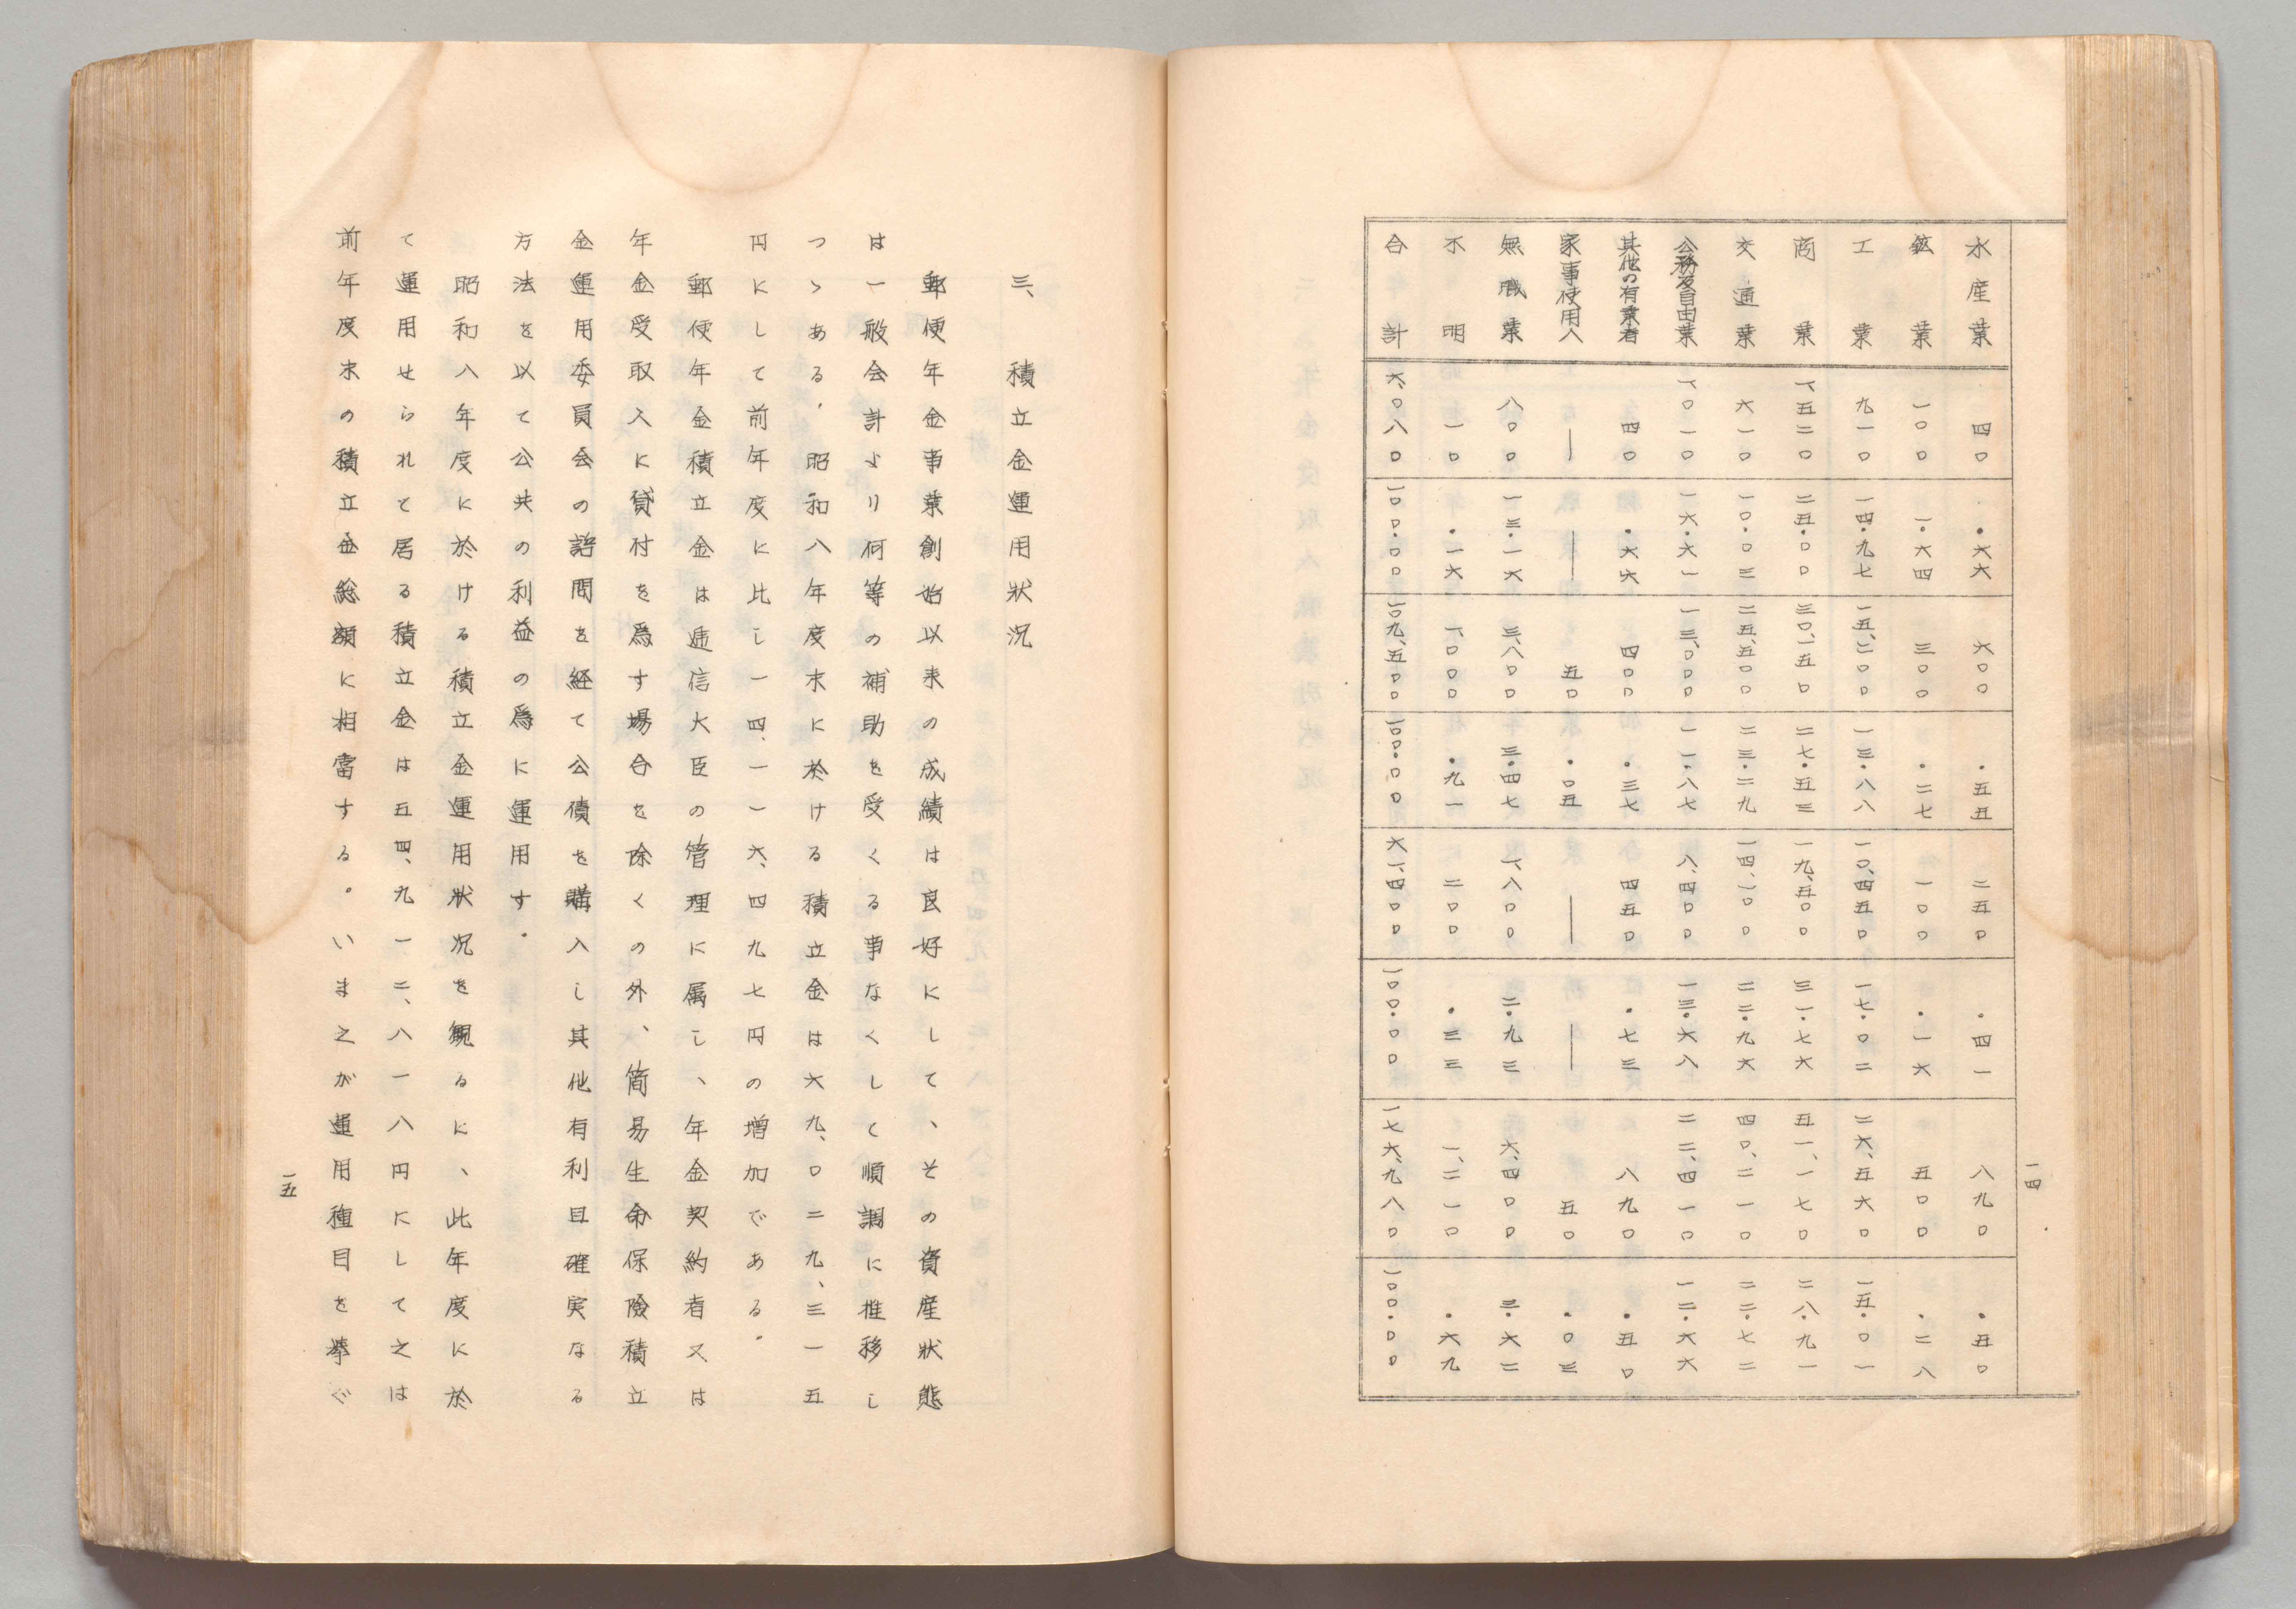 一四
水産業 四〇 ・六六 六〇〇 ・五五 二五〇 ・四一 八九〇 ・五〇
鉱業 一〇〇 一・六四 三〇〇 ・二七 一〇〇 ・一六 五〇〇 ・二八
工業 九一〇 一四・九七 一五、二〇〇 一三・八八 一〇、四五〇 一七・〇二 二六、五六〇 一五・〇一
商業 一、五二〇 二五・〇〇 三〇、一五〇 二七・五三 一九、五〇〇 三一・七六 五一、一七〇 二八・九一
交通業 六一〇 一〇・〇三 二五、五〇〇 二三・二九 一四、一〇〇 二二・九六 四〇、二一〇 二二・七二
公務及自由業 一、〇一〇 一六・六一 一三、〇〇〇 一一・八七 八、四〇〇 一三・六八 二二、四一〇 一二・六六
其他の有業者 四〇 ・六六 四〇〇 ・三七 四五〇 ・七三 八九〇 ・五〇
家事使用人 ― ― 五〇 ・〇五 ― ― 五〇 ・〇三
無職業 八〇〇 一三・一六 三、八〇〇 三・四七 一、八〇〇 二・九三 六、四〇〇 三・六二
不明 一〇 ・一六 一、〇〇〇 ・九一 二〇〇 ・三三 一、二一〇 ・六九
合計 六、〇八〇 一〇〇・〇〇 一〇九、五〇〇 一〇〇・〇〇 六一、四〇〇 一〇〇・〇〇 一七六、九八〇 一〇〇・〇〇
三、積立金運用状況
郵便年金事業創始以来の成績は良好にして、その資産状態
は一般会計より何等の補助を受くる事なくして順調に推移し
つゝある、昭和八年度末に於ける積立金は六九、〇二九、三一五
円にして前年度に比し一四、一一六、四九七円の増加である。
郵便年金積立金は逓信大臣の管理に属し、年金契約者又は
年金受取人に貸付を為す場合を除くの外、簡易生命保険積立
金運用委員会の諮問を経て公債を購入し其他有利且確実なる
方法を以て公共の利益の為に運用す。
昭和八年度に於ける積立金運用状況を観るに、此年度に於
て運用せられて居る積立金は五四、九一二、八一八円にして之は
前年度末の積立金総額に相当する。いま之が運用種目を挙ぐ
一五